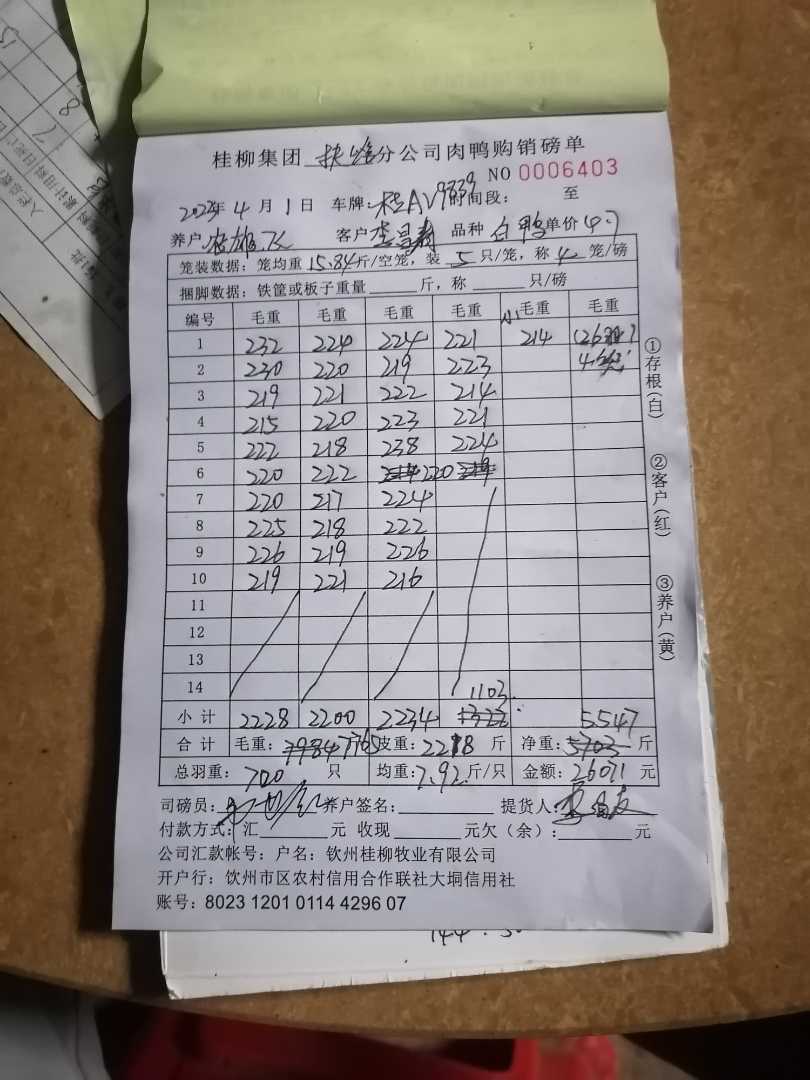 桂柳集团 扶绥 分公司肉鸭购销磅单
NO 0006403
2025年 4 月 1 日 车牌: 桂AV9839 时间段: 至
养户 客户 李 品种 白鸭 单价 4.7
笼装数据: 笼均重 15.84 斤/空笼, 装 5 只/笼, 称 4 笼/磅
捆脚数据: 铁筐或板子重量 斤, 称 只/磅
编号 毛重 毛重 毛重 毛重 毛重 毛重
1 232 224 224 221 214
2 230 220 219 223
3 219 221 222 214
4 215 220 223 221
5 222 218 238 224
6 220 222 220
7 220 217 224
8 225 218 222
9 226 219 226
10 219 221 216
11
12
13
14 1103
小计 2228 2200 2234 5547
合计 毛重: 7984 7765 皮重: 2218 斤 净重: 5703 斤
总羽重: 700 只 均重: 7.92 斤/只 金额: 26071 元
司磅员: 养户签名: 提货人:
付款方式: 汇 元 收现 元欠(余): 元
公司汇款帐号: 户名: 钦州桂柳牧业有限公司
开户行: 钦州市区农村信用合作联社大垌信用社
账号: 8023 1201 0114 4296 07
①存根(白)
②客户(红)
③养户(黄)